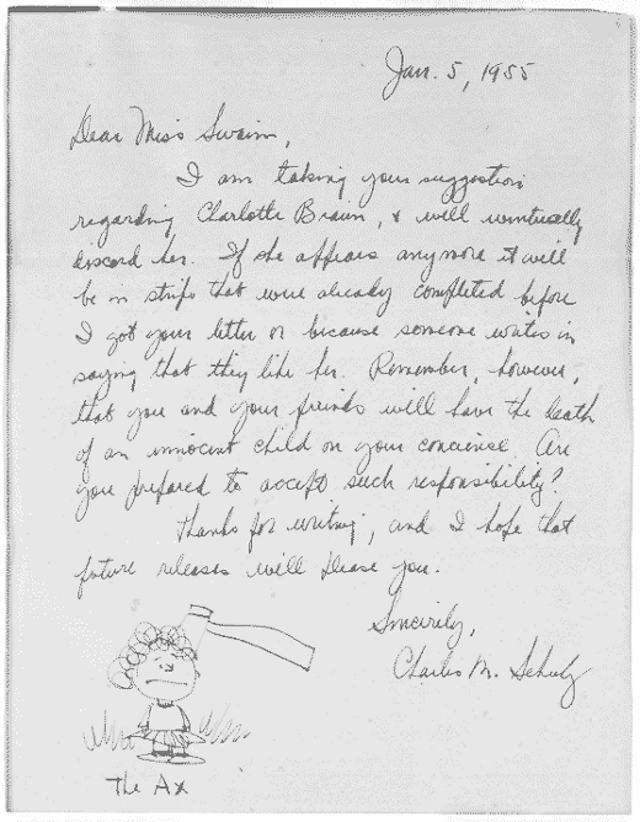 Jan. 5, 1955
Dear Miss Swaim,
I am taking your suggestion
regarding Charlotte Braun, & will eventually
discard her. If she appears anymore it will
be in strips that were already completed before
I got your letter or because someone writes in
saying that they like her. Remember, however,
that you and your friends will have the death
of an innocent child on your conscience. Are
you prepared to accept such responsibility?
Thanks for writing, and I hope that
future releases will please you.
Sincerely,
Charles M. Schulz
The Ax